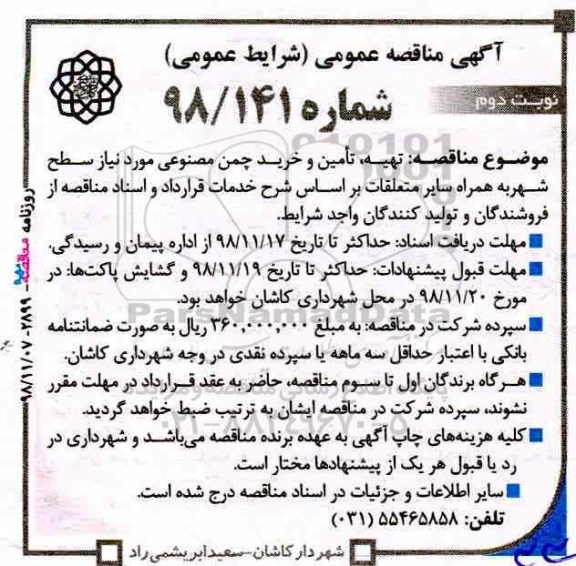 آگهی مناقصه عمومی (شرایط عمومی)
نوبت دوم
شماره ۹۸/۱۴۱
موضوع مناقصه: تهیه، تأمین و خرید چمن مصنوعی مورد نیاز سطح
شهربه همراه سایر متعلقات بر اساس شرح خدمات قرارداد و اسناد مناقصه از
فروشندگان و تولید کنندگان واجد شرایط.
مهلت دریافت اسناد: حداکثر تا تاریخ ۹۸/۱۱/۱۷ از اداره پیمان و رسیدگی.
مهلت قبول پیشنهادات: حداکثر تا تاریخ ۹۸/۱۱/۱۹ و گشایش پاکت‌ها: در
مورخ ۹۸/۱۱/۲۰ در محل شهرداری کاشان خواهد بود.
سپرده شرکت در مناقصه: به مبلغ ۳۶۰,۰۰۰,۰۰۰ ریال به صورت ضمانتنامه
بانکی با اعتبار حداقل سه ماهه یا سپرده نقدی در وجه شهرداری کاشان.
هرگاه برندگان اول تا سوم مناقصه، حاضر به عقد قرارداد در مهلت مقرر
نشوند، سپرده شرکت در مناقصه ایشان به ترتیب ضبط خواهد گردید.
کلیه هزینه‌های چاپ آگهی به عهده برنده مناقصه می‌باشد و شهرداری در
رد یا قبول هر یک از پیشنهادها مختار است.
سایر اطلاعات و جزئیات در اسناد مناقصه درج شده است.
تلفن: ۵۵۴۶۵۸۵۸ (۰۳۱)
شهردار کاشان-سعیدابریشمی راد
روزنامه مناقصه ۲۸۹۹-۹۸/۱۱/۰۷
ParsNamadData
۰۲۱-۸۸۳۴۹۶۷۰-۵